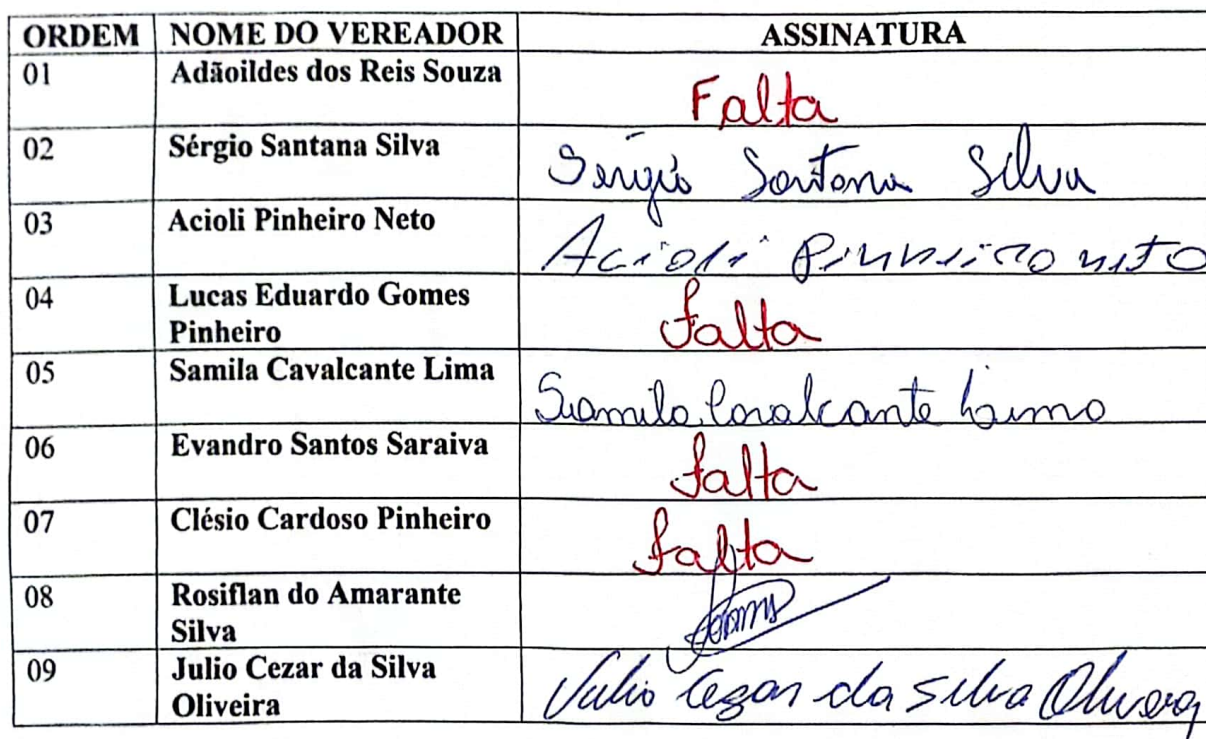 ORDEM NOME DO VEREADOR ASSINATURA
01 Adãoildes dos Reis Souza Falta
02 Sérgio Santana Silva Sérgio Santana Silva
03 Acioli Pinheiro Neto Acioli Pinheiro neto
04 Lucas Eduardo Gomes
Pinheiro falta
05 Samila Cavalcante Lima Samila Cavalcante Lima
06 Evandro Santos Saraiva falta
07 Clésio Cardoso Pinheiro falta
08 Rosiflan do Amarante
Silva
09 Julio Cezar da Silva
Oliveira Julio Cezar da Silva Oliveira